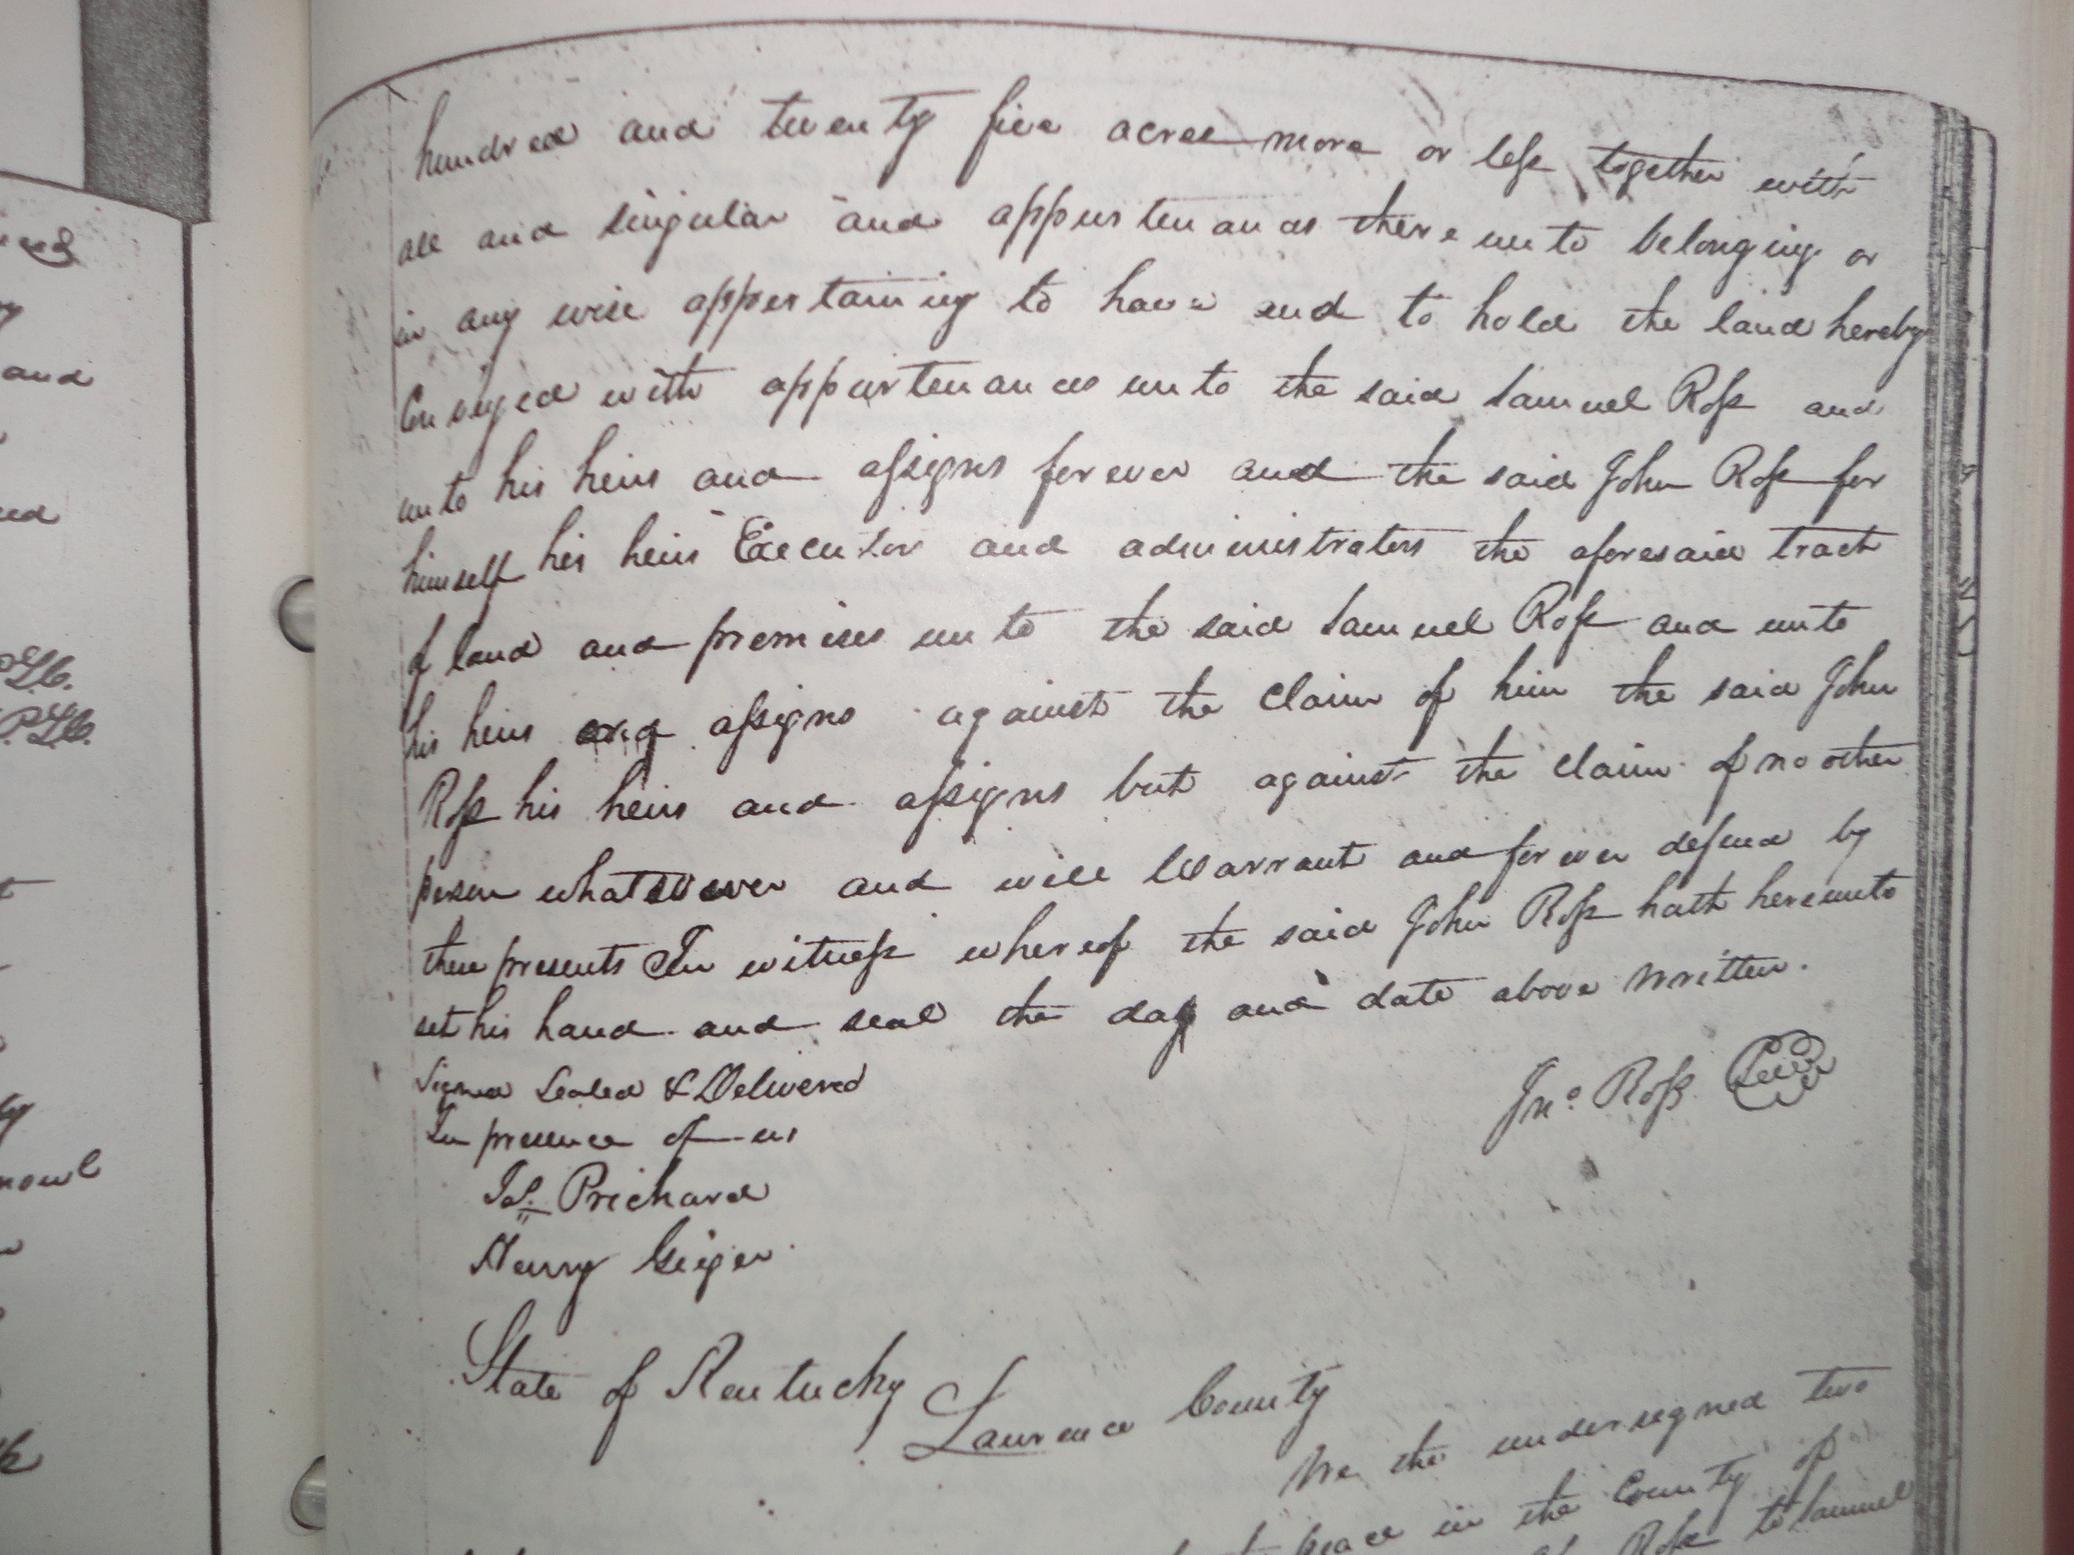 hundred and twenty five acres more or less together with
all and singular and appurtenances thereunto belonging or
in any wise appertaining to have and to hold the land hereby
Conveyed with appurtenances unto the said Samuel Ross and
unto his heirs and assigns forever and the said John Ross for
himself his heirs Executors and administrators the aforesaid tract
of land and premises unto the said Samuel Ross and unto
his heirs and assigns against the claim of him the said John
Ross his heirs and assigns but against the claim of no other
person whatsoever and will Warrant and forever defend by
these presents In witness whereof the said John Ross hath hereunto
set his hand and seal the day and date above written.
Signed Sealed & Delivered
In presence of us
Jno. Ross Seal
Jas. Prichard
Henry Geiger
State of Kentucky
Lawrence County
We the undersigned two
peace in the County of
Ross to Samuel
and